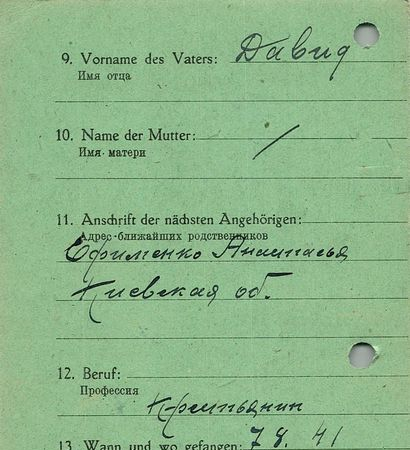 9. Vorname des Vaters: Давид
Имя отца
10. Name der Mutter: /
Имя матери
11. Anschrift der nächsten Angehörigen:
Адрес ближайших родственников
Ефименко Анастасья
Киевская об.
12. Beruf:
Профессия
Крестьянин
13. Wann und wo gefangen: 7 8. 41